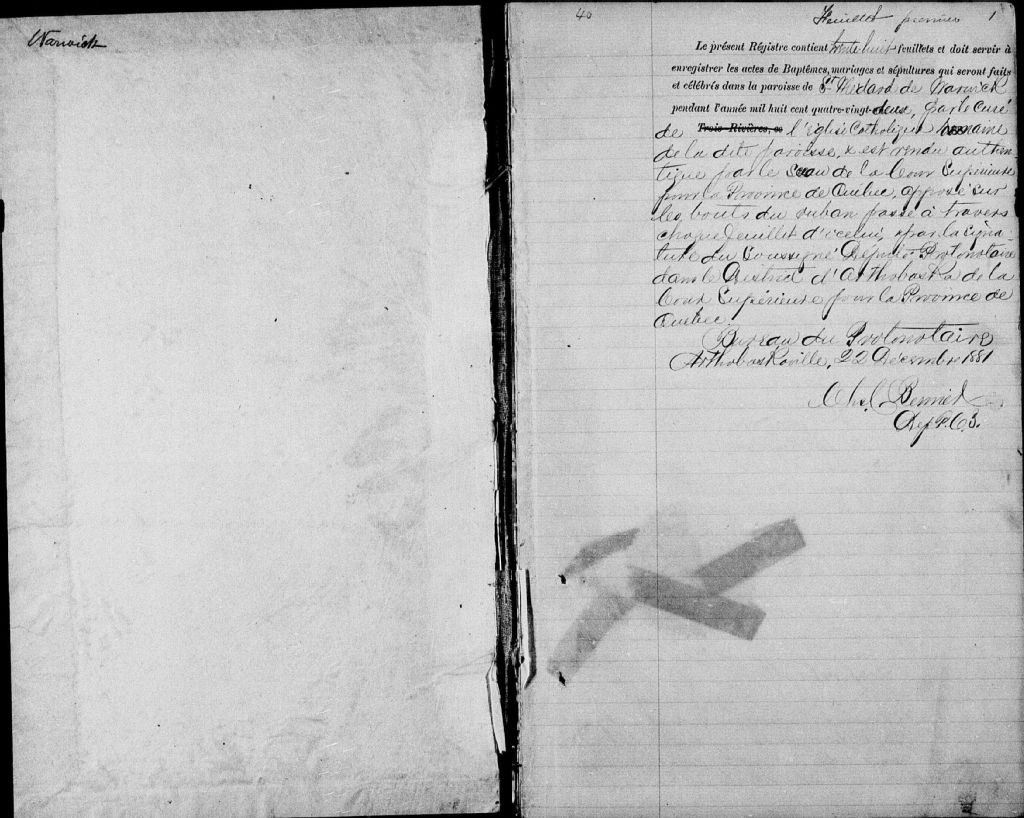 Warwick
40
Feuillet premier 1
Le présent Régistre contient trente huit feuillets et doit servir à
enregistrer les actes de Baptêmes, mariages et sépultures qui seront faits
et célébrés dans la paroisse de St Médard de Warwick
pendant l'année mil huit cent quatre-vingt-deux, par le Curé
de Trois-Rivières, ce l'Eglise Catholique Romaine
de la dite paroisse, & est rendu authen-
tique par le Sceau de la Cour Supérieure
pour la Province de Québec, apposé sur
les bouts du ruban passé à travers
chaque feuillet d'icelui, & par la signa-
ture du Soussigné Député Protonotaire
dans le District d'Arthabaska de la
Cour Supérieure pour la Province de
Québec.
Bureau du Protonotaire
Arthabaskaville, 22 Décembre 1881
Chs.
Dep P.C.S.